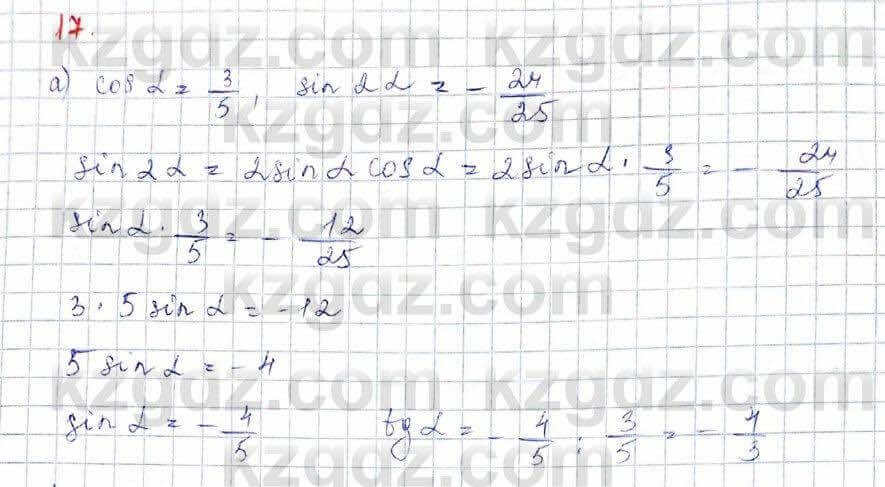 17.
a) cos α = 3/5, sin 2α = - 24/25
sin 2α = 2 sin α cos α = 2 sin α · 3/5 = - 24/25
sin α · 3/5 = - 12/25
3 · 5 sin α = -12
5 sin α = -4
sin α = - 4/5 tg α = - 4/5 : 3/5 = - 4/3
kzgdz.com kzgdz.com
kzgdz.com kzgdz.com
kzgdz.com kzgdz.com
kzgdz.com kzgdz.com
kzgdz.com kzgdz.com
kzgdz.com kzgdz.com